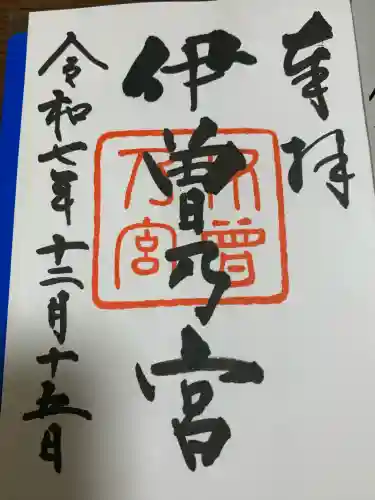 奉拝
伊曽乃宮
伊曽乃宮
令和七年十二月十五日